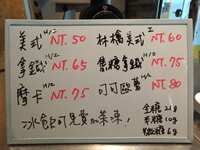 美式 H/I NT.50
林檎美式 I NT.60
拿鐵 H/I NT.65
焦糖拿鐵 H/I NT.75
摩卡 H/I NT.75
可可歐蕾 H/I NT.80
冰飲可免費加茉凍!
全糖 21g
半糖 10g
微糖 6g